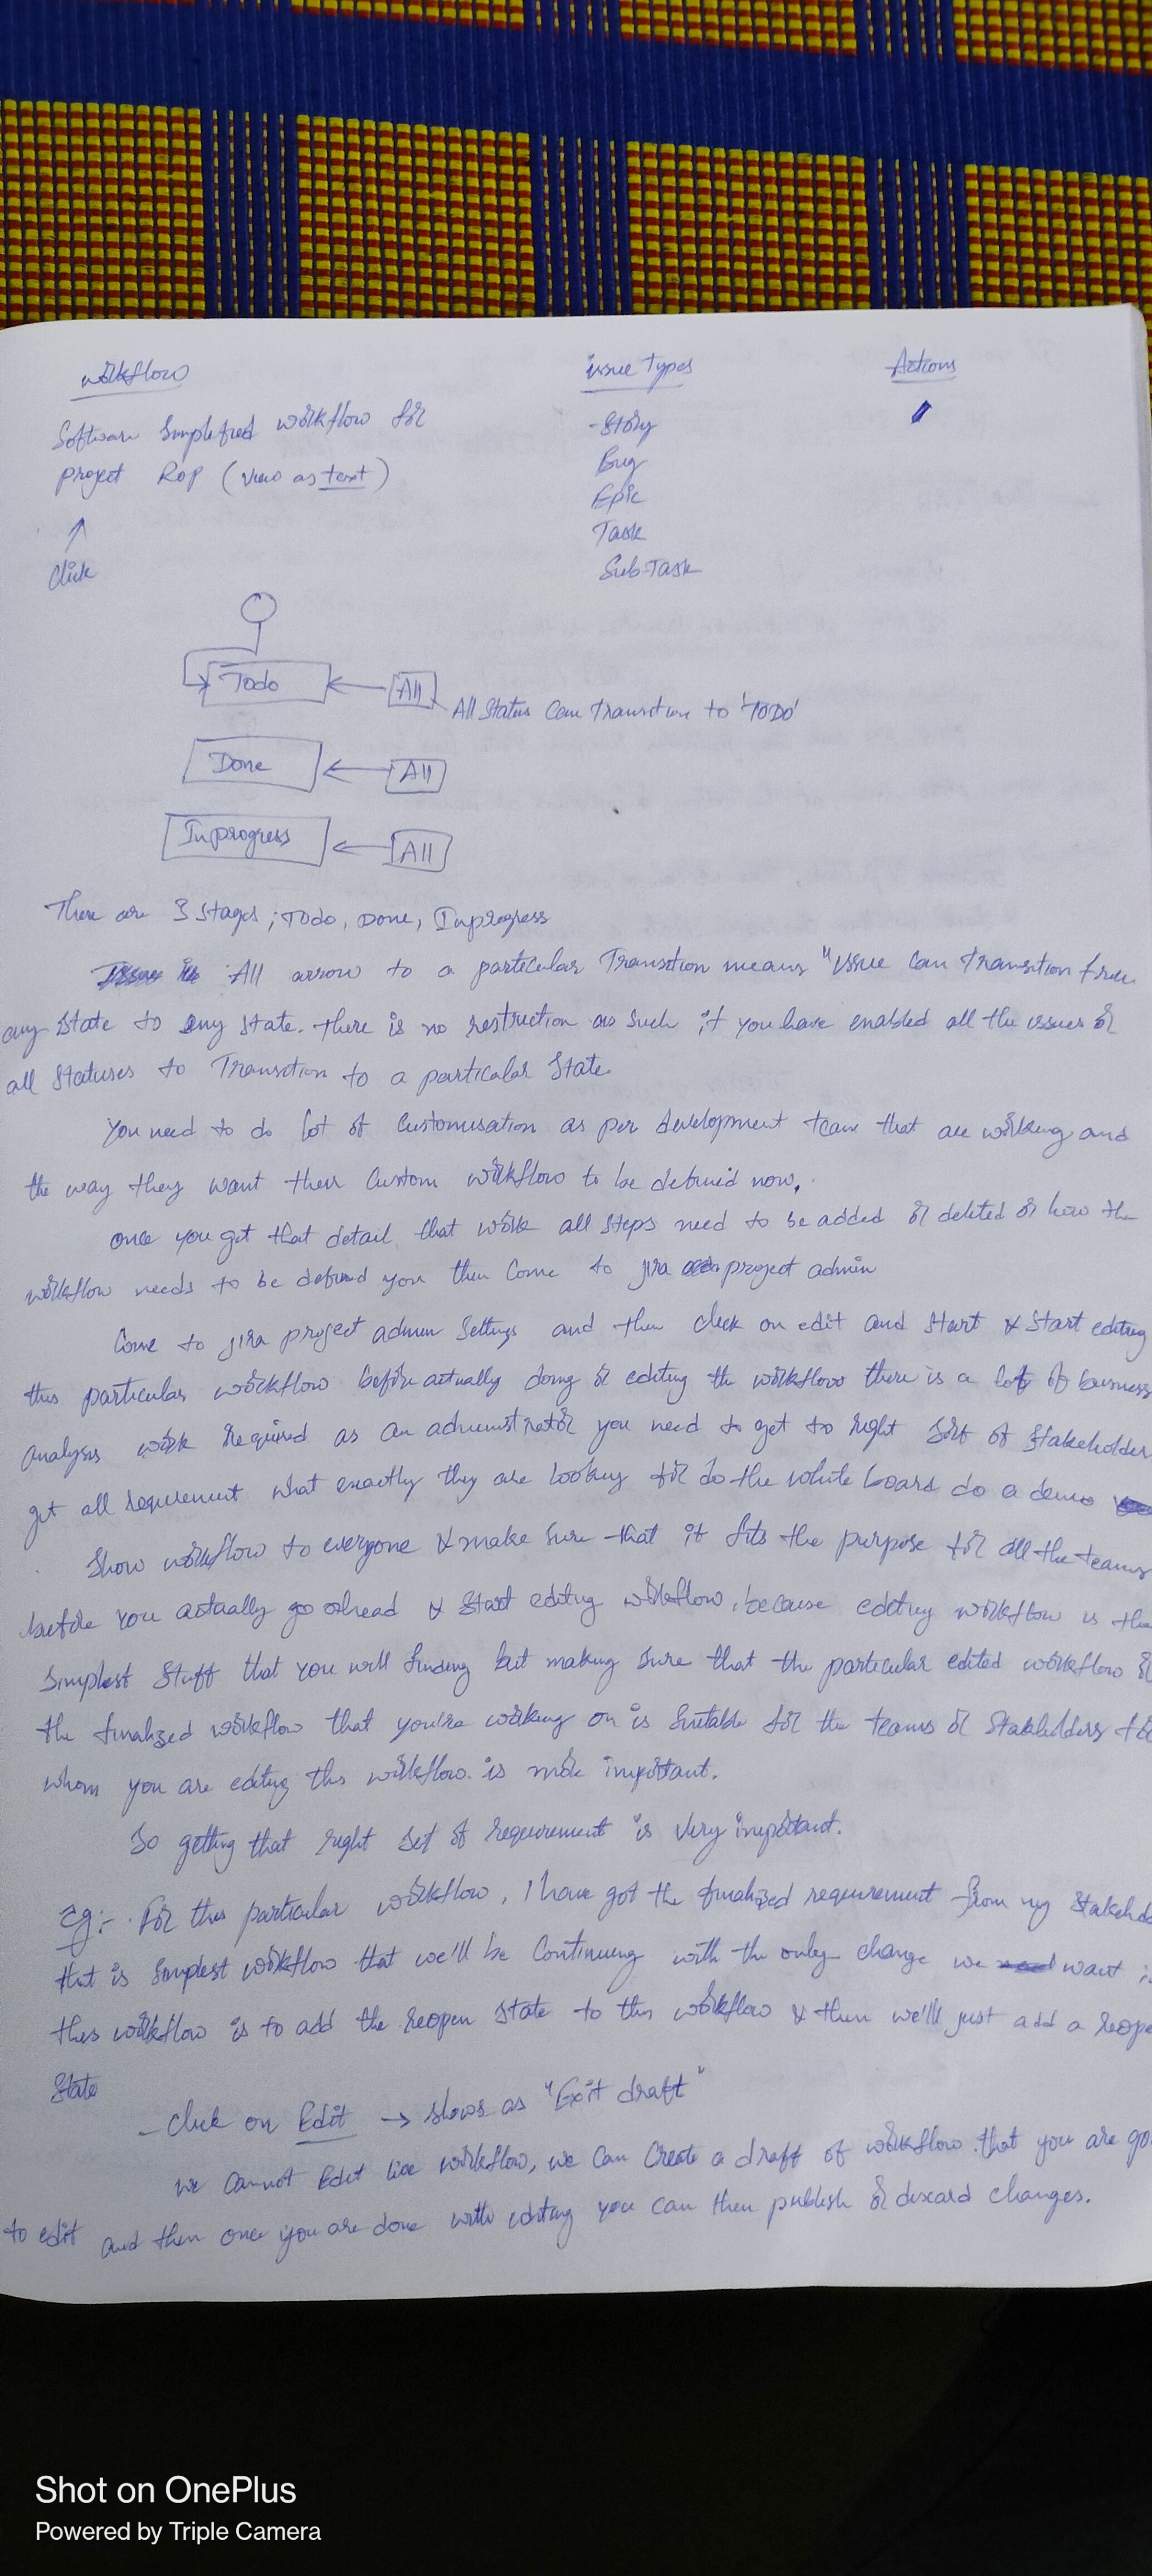 workflow    issue Types    Actions
Software Simplefied workflow for    - Story
project ROP (view as text)    Bug
Epic
↑    Task
Click    Sub-Task
Todo ← All    All Status Can Transition to 'TODO'
Done ← All
Inprogress ← All
There are 3 Stages ; Todo, Done, Inprogress
All arrow to a particular Transition means "issue can transition from
any State to any State. There is no restriction as such if you have enabled all the issues or
all Statuses to Transition to a particular State.
You need to do lot of Customisation as per development team that are working and
the way they want their Custom workflow to be defined now.
once you get that detail that work all steps need to be added or deleted or how the
workflow needs to be defined you then Come to jira project admin
Come to jira project admin Settings and then click on edit and Start & Start editing
this particular workflow before actually doing or editing the workflow there is a lot of business
analysis work required as an administrator you need to get to right sort of Stakeholder
get all requirement what exactly they are looking for do the white board do a demo
Show workflow to everyone & make sure that it fits the purpose for all the teams
before You actually go ahead & Start editing workflow. because editing workflow is the
Simplest Stuff that you will finding but making sure that the particular edited workflow or
the finalized workflow that you're working on is Suitable for the teams or Stakeholders for
whom you are editing this workflow. is more important.
So getting that right set of requirement is very important.
Eg:- For this particular workflow, I have got the finalized requirement from my Stakehol
that is Simplest workflow that we'll be Continuing with the only change we want i
this workflow is to add the reopen State to this workflow & then we'll just add a reope
State
- click on Edit → shows as "Exit draft"
we cannot Edit live workflow, we can Create a draft of workflow that you are go
to edit and then once you are done with editing you can then publish or discard changes.
Shot on OnePlus
Powered by Triple Camera